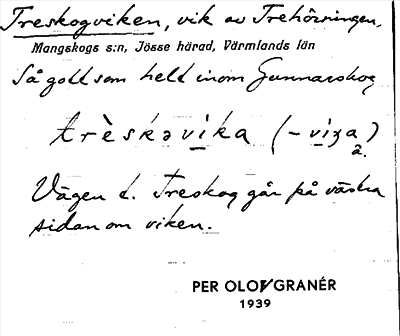 Treskogviken, vik av Trehörningen,
Mangskogs s:n, Jösse härad, Värmlands län
Så gott som helt inom Gunnarskog
trèskəvika (-viga)
a.
Vägen t. Treskog går på västra
sidan om viken.
PER OLOV GRANÉR
1939